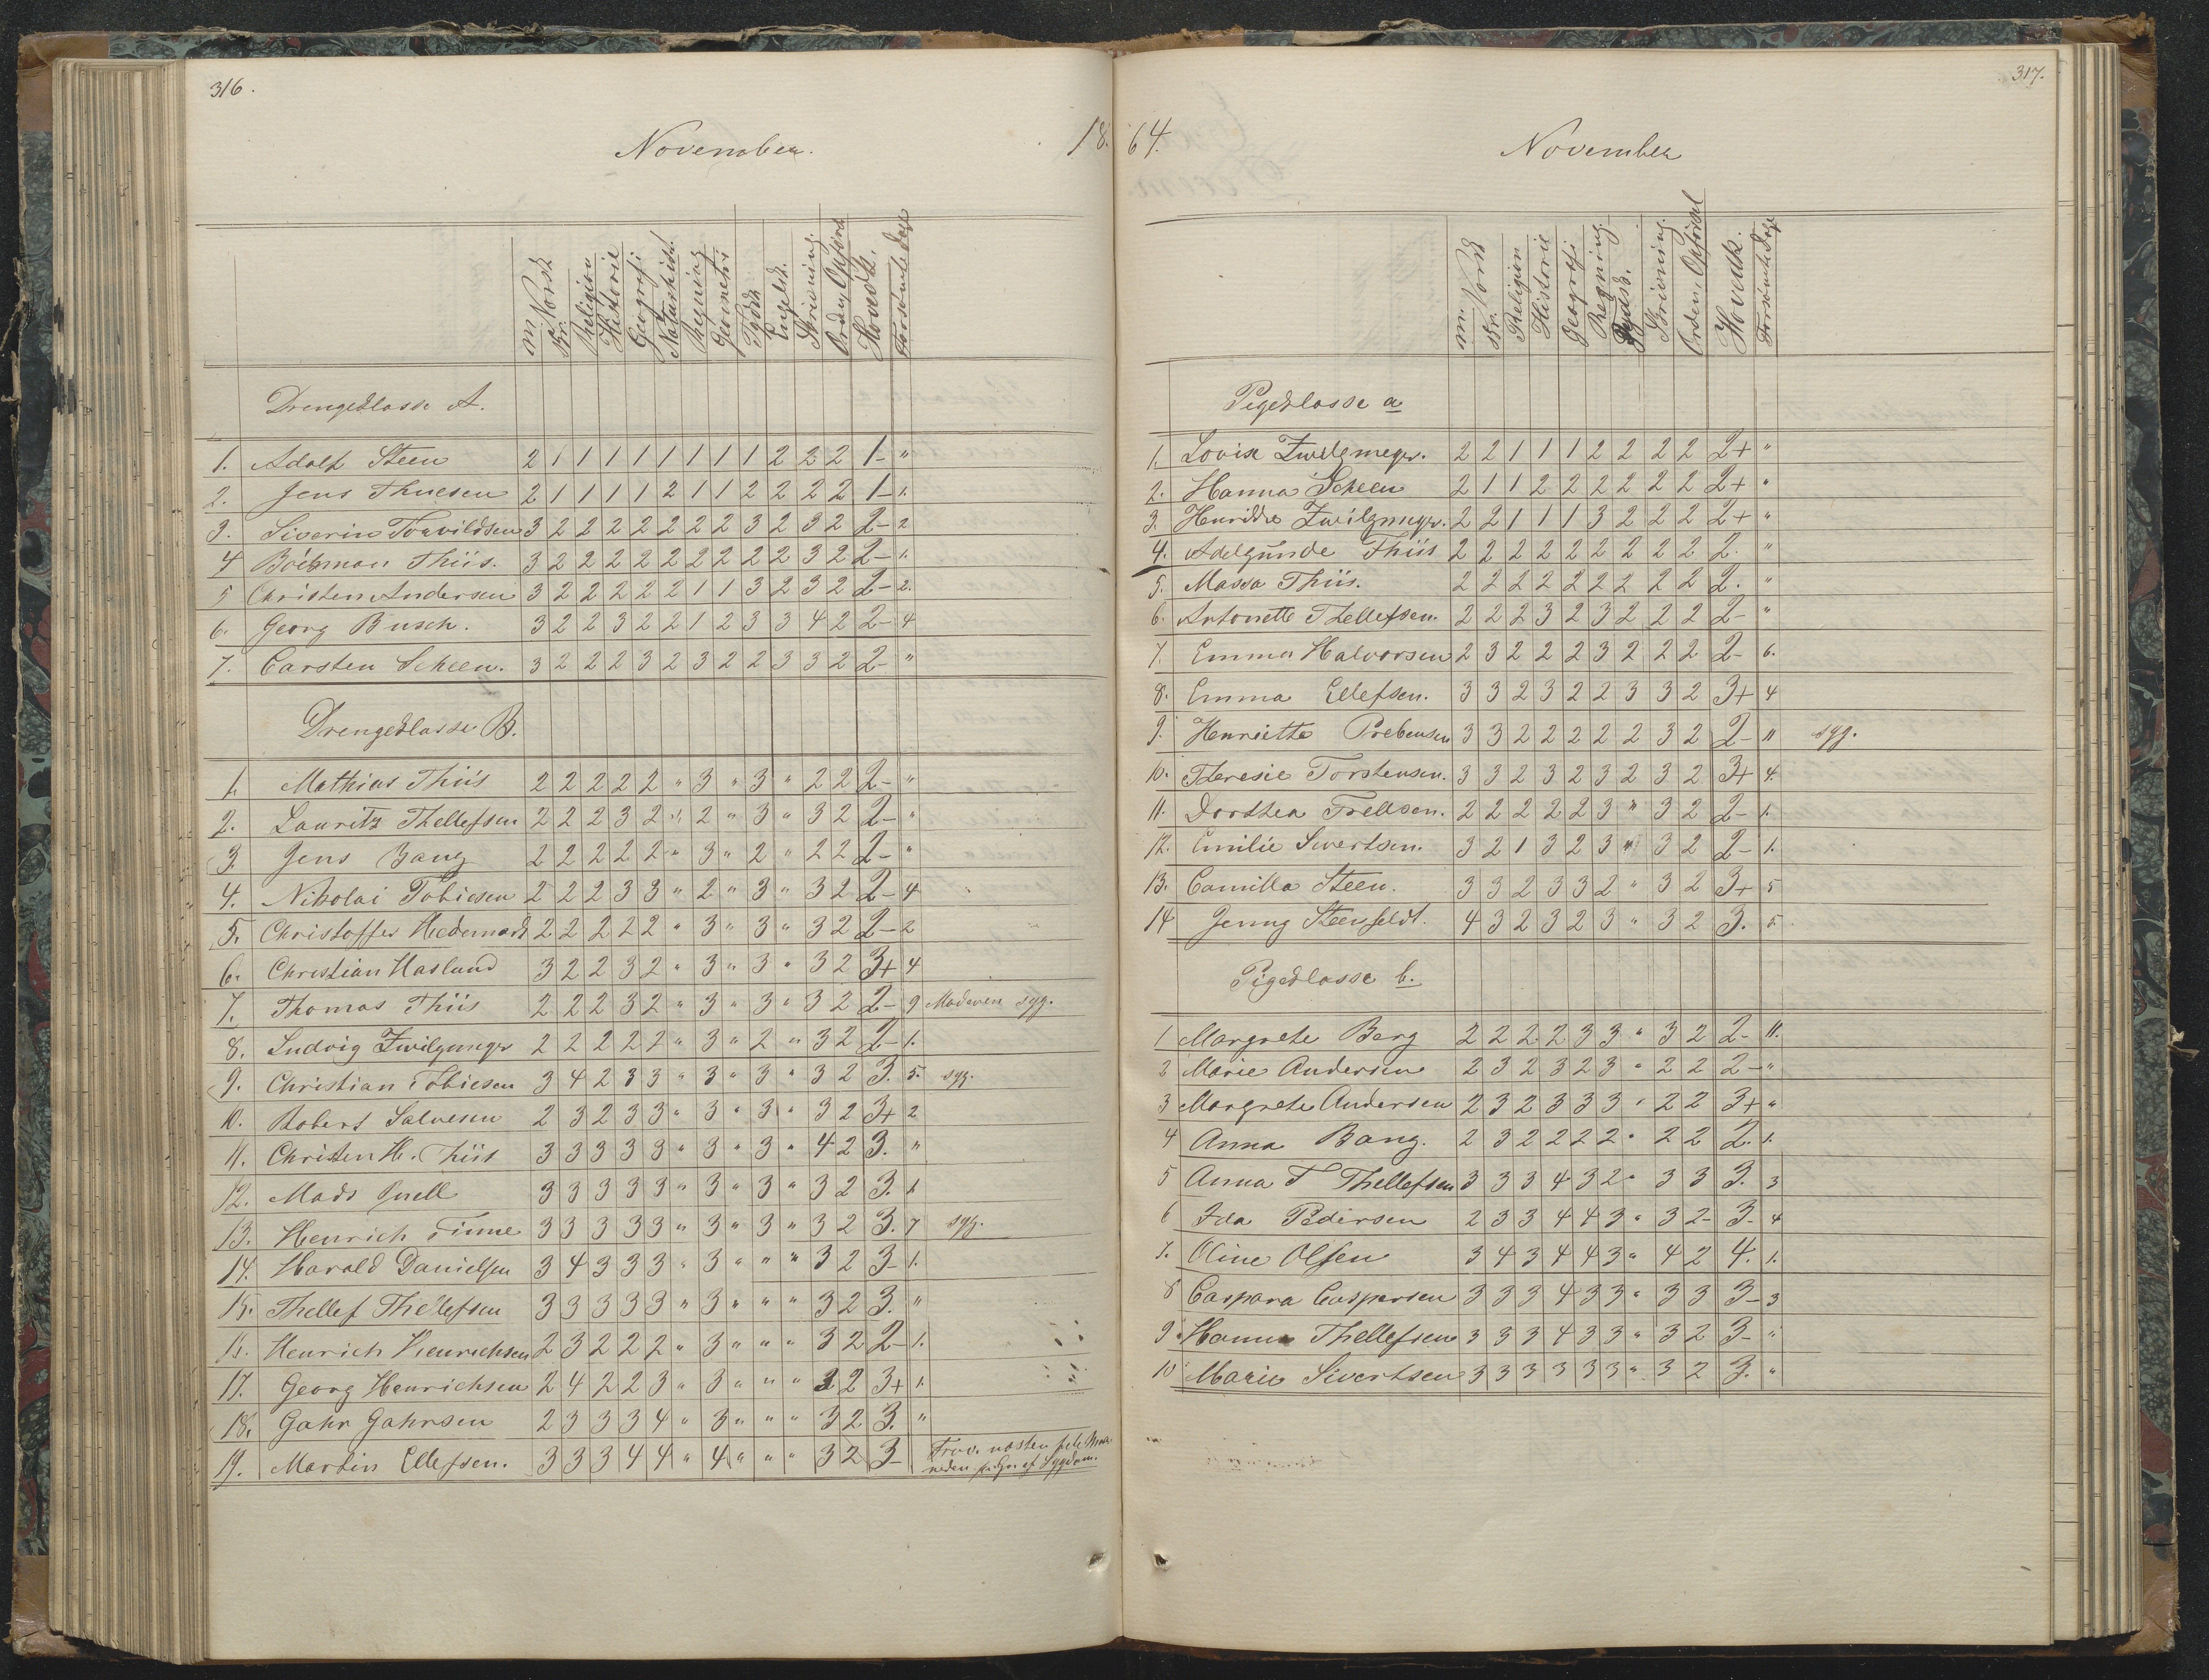 316.
November.
18
m. Norsk
skr.
Religion
Historie
Geografi
Naturhist.
Regning
Geometri
Tydsk
Engelsk.
Skrivning.
Orden, Opførs
Hovedk.
Forsømte dage
Drengeklasse A.
1. Adolf Steen 2 1 1 1 1 1 1 1 1 2 2 2 1- "
2. Jens Thuesen 2 1 1 1 1 2 1 1 2 2 2 2 1- 1.
3. Siverin Torvildsen 3 2 2 2 2 2 2 2 3 2 3 2 2- 2
4 Thiis. 3 2 2 2 2 2 2 2 2 2 3 2 2- 1.
5 Christen Andersen 3 2 2 2 2 2 1 1 3 2 3 2 2- 2.
6. Georg Busch. 3 2 2 3 2 2 1 2 3 3 4 2 2- 4
7. Carsten Scheen. 3 2 2 2 3 2 3 2 2 3 3 2 2- "
Drengeklasse B.
1. Mathias Thiis 2 2 2 2 2 " 3 " 3 " 2 2 2- "
2. Lauritz Thellefsen 2 2 2 3 2 " 2 " 3 " 3 2 2- "
3. Jens Bang 2 2 2 2 2 " 3 " 2 " 2 2 2- "
4. Nikolai Tobiesen 2 2 2 3 3 " 2 " 3 " 3 2 2- 4
5. Christoffer Hedemark 2 2 2 2 2 " 3 " 3 " 3 2 2- 2
6. Christian Haslund 3 2 2 3 2 " 3 " 3 " 3 2 3+ 4
7. Thomas Thiis 2 2 2 3 2 " 3 " 3 " 3 2 2- 9 Moderen syg.
8. Ludvig Zwilgmeyer 2 2 2 2 2 " 3 " 2 " 3 2 2- 1.
9. Christian Tobiesen 3 4 2 3 3 " 3 " 3 " 3 2 3. 5. syg.
10. Robert Salvesen 2 3 2 3 3 " 3 " 3 " 3 2 3+ 2
11. Christen H. Thiis 3 3 3 3 3 " 3 " 3 " 4 2 3. "
12. Mads Qvell 3 3 3 3 3 " 3 " 3 " 3 2 3. 1.
13. Henrich Finne 3 3 3 3 3 " 3 " 3 " 3 2 3. 7 syg.
14. Harald Danielsen 3 4 3 3 3 " 3 " " " 3 2 3- 1.
15. Thellef Thellefsen 3 3 3 3 3 " 3 " " " 3 2 3. "
16. Henrich Henrichsen 2 3 2 2 2 " 3 " " " 3 2 2- 1.
17. Georg Henrichsen 2 4 2 2 3 " 3 " " " 3 2 3+ 1.
18. Gahr Gahrsen 2 3 3 3 4 " 3 " " " 3 2 3. "
19. Martin Ellefsen. 3 3 3 4 4 " 4 " " " 3 2 3- Frav. næsten hele Maa-
neden p. Gr. af Sygdom.
317.
64.
November
m. Norsk
skr.
Religion
Historie
Geografi
Regning.
Tydsk.
Skrivning.
Orden, Opførsel
Hovedk.
Forsømte dage
Pigeklasse a
1. Lovise Zwilgmeyer. 2 2 1 1 1 2 2 2 2 2+ "
2. Hanna Scheen 2 1 1 2 2 2 2 2 2 2+ "
3. Henrikke Zwilgmeyer. 2 2 1 1 1 3 2 2 2 2+ "
4. Adelgunde Thiis 2 2 2 2 2 2 2 2 2 2. "
5. Massa Thiis. 2 2 2 2 2 2 2 2 2 2. "
6. Antonette Thellefsen. 2 2 2 3 2 3 2 2 2 2- "
7. Emma Halvorsen 2 3 2 2 2 3 2 2 2 2- 6.
8. Emma Ellefsen. 3 3 2 3 2 2 3 3 2 3+ 4
9. Henriette Prebensen 3 3 2 2 2 2 2 3 2 2- 11 syg.
10. Theresie Torstensen. 3 3 2 3 2 3 2 3 2 3+ 4.
11. Dorthea Trellsen. 2 2 2 2 2 3 " 3 2 2- 1.
12. Emilie Sivertsen. 3 2 1 3 2 3 " 3 2 2- 1.
13. Camilla Steen. 3 3 2 3 3 2 " 3 2 3+ 5
14 Jenny Steenfeldt. 4 3 2 3 2 3 " 3 2 3. 5.
Pigeklasse b.
1 Margrete Berg 2 2 2 2 3 3 " 3 2 2- 11.
2 Marie Andersen 2 3 2 3 2 3 " 2 2 2- "
3 Margrete Andersen 2 3 2 3 3 3 " 2 2 3+ "
4 Anna Bang. 2 3 2 2 2 2 " 2 2 2. 1.
5 Anna T Thellefsen 3 3 3 4 3 2 " 3 3 3. 3
6 Ida Pedersen 2 3 3 4 4 3 " 3 2 3- 4
7. Oline Olsen 3 4 3 4 4 3 " 4 2 4. 1.
8 Caspara Caspersen 3 3 3 4 3 3 " 3 3 3- 3
9 Hanna Thellefsen 3 3 3 4 3 3 " 3 2 3- "
10 Marie Sivertsen 3 3 3 3 3 3 " 3 2 3. "